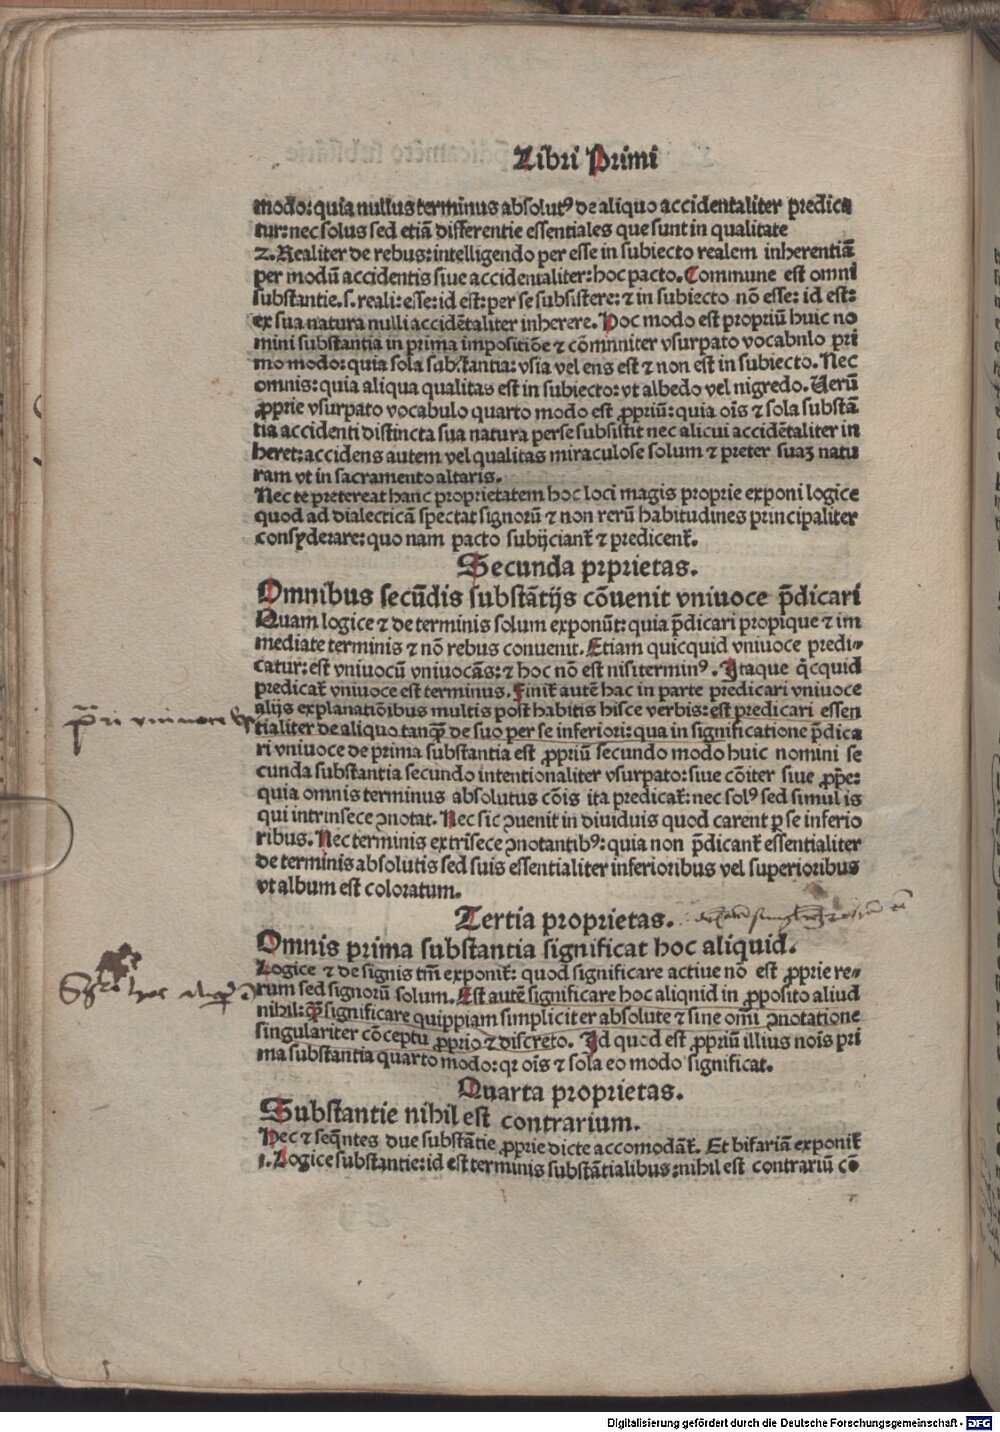 Libri Primi
modo: quia nullus terminus absolutꝰ de aliquo accidentaliter predica
tur: nec solus sed etiā differentie essentiales que sunt in qualitate
2. Realiter de rebus: intelligendo per esse in subiecto realem inherentiā
per modū accidentis siue accidentaliter: hoc pacto. Commune est omni
substantie. s. reali: esse: id est: per se subsistere: ⁊ in subiecto nō esse: id est:
ex sua natura nulli accidētaliter inherere. Hoc modo est propriū huic no
mini substantia in prima impositiōe ⁊ cōmnniter vsurpato vocabnlo pri
mo modo: quia sola substantia: vsia vel ens est ⁊ non est in subiecto. Nec
omnis: quia aliqua qualitas est in subiecto: vt albedo vel nigredo. Uerū
ꝓprie vsurpato vocabulo quarto modo est ꝓpriū: quia oīs ⁊ sola substā
tia accidenti distincta sua natura perse subsistit nec alicui accidētaliter in
heret: accidens autem vel qualitas miraculose solum ⁊ preter suaꝫ natu
ram vt in sacramento altaris.
Nec te pretereat hanc proprietatem hoc loci magis proprie exponi logice
quod ad dialecticā spectat signorū ⁊ non rerū habitudines principaliter
consyderare: quo nam pacto subijciant̄ ⁊ predicent̄.
Secunda prprietas.
Omnibus secūdis substātijs cōuenit vniuoce p̄dicari
Quam logice ⁊ de terminis solum exponūt: quia p̄dicari propique ⁊ im
mediate terminis ⁊ nō rebus conuenit. Etiam quicquid vniuoce predi⸗
catur: est vniuocū vniuocās: ⁊ hoc nō est nisi terminꝰ. Itaque q̇cquid
predicat̄ vniuoce est terminus. Finit̄ autē hac in parte predicari vniuoce
alijs explanatiōibus multis post habitis hisce verbis: est predicari essen
tialiter de aliquo tanq̄ꝫ de suo per se inferiori: qua in significatione p̄dica
ri vniuoce de prima substantia est ꝓpriū secundo modo huic nomini se
cunda substantia secundo intentionaliter vsurpato: siue cōiter siue ꝓp̄e:
quia omnis terminus absolutus cōis ita predicat̄: nec solꝰ sed simul is
qui intrinsece ꝯnotat. Nec sic ꝯuenit in diuiduis quod carent ꝑ se inferio
ribus. Nec terminis extrīsece ꝯnotantibꝰ: quia non p̄dicant̄ essentialiter
de terminis absolutis sed suis essentialiter inferioribus vel superioribus
vt album est coloratum.
Tertia proprietas.
Omnis prima substantia significat hoc aliquid.
Logice ⁊ de signis tm̄ exponit̄: quod significare actiue nō est ꝓprie re⸗
rum sed signorū solum. Est autē significare hoc aliqnid in ꝓposito aliud
nihil: q̄ꝫ significare quippiam simpliciter absolute ⁊ sine omi ꝯnotatione
singulariter cōceptu ꝓprio ⁊ discreto. Id quod est ꝓpriū illius nois pri
ma substantia quarto modo: qꝛ oīs ⁊ sola eo modo significat.
Quarta proprietas.
Substantie nihil est contrarium.
Hec ⁊ seq̄ntes due substātie ꝓprie dicte accomodāt̄. Et bifariā exponit̄
1. Logice substantie: id est terminis substātialibus: nihil est contrariū cō
Digitalisierung gefördert durch die Deutsche Forschungsgemeinschaft - DFG